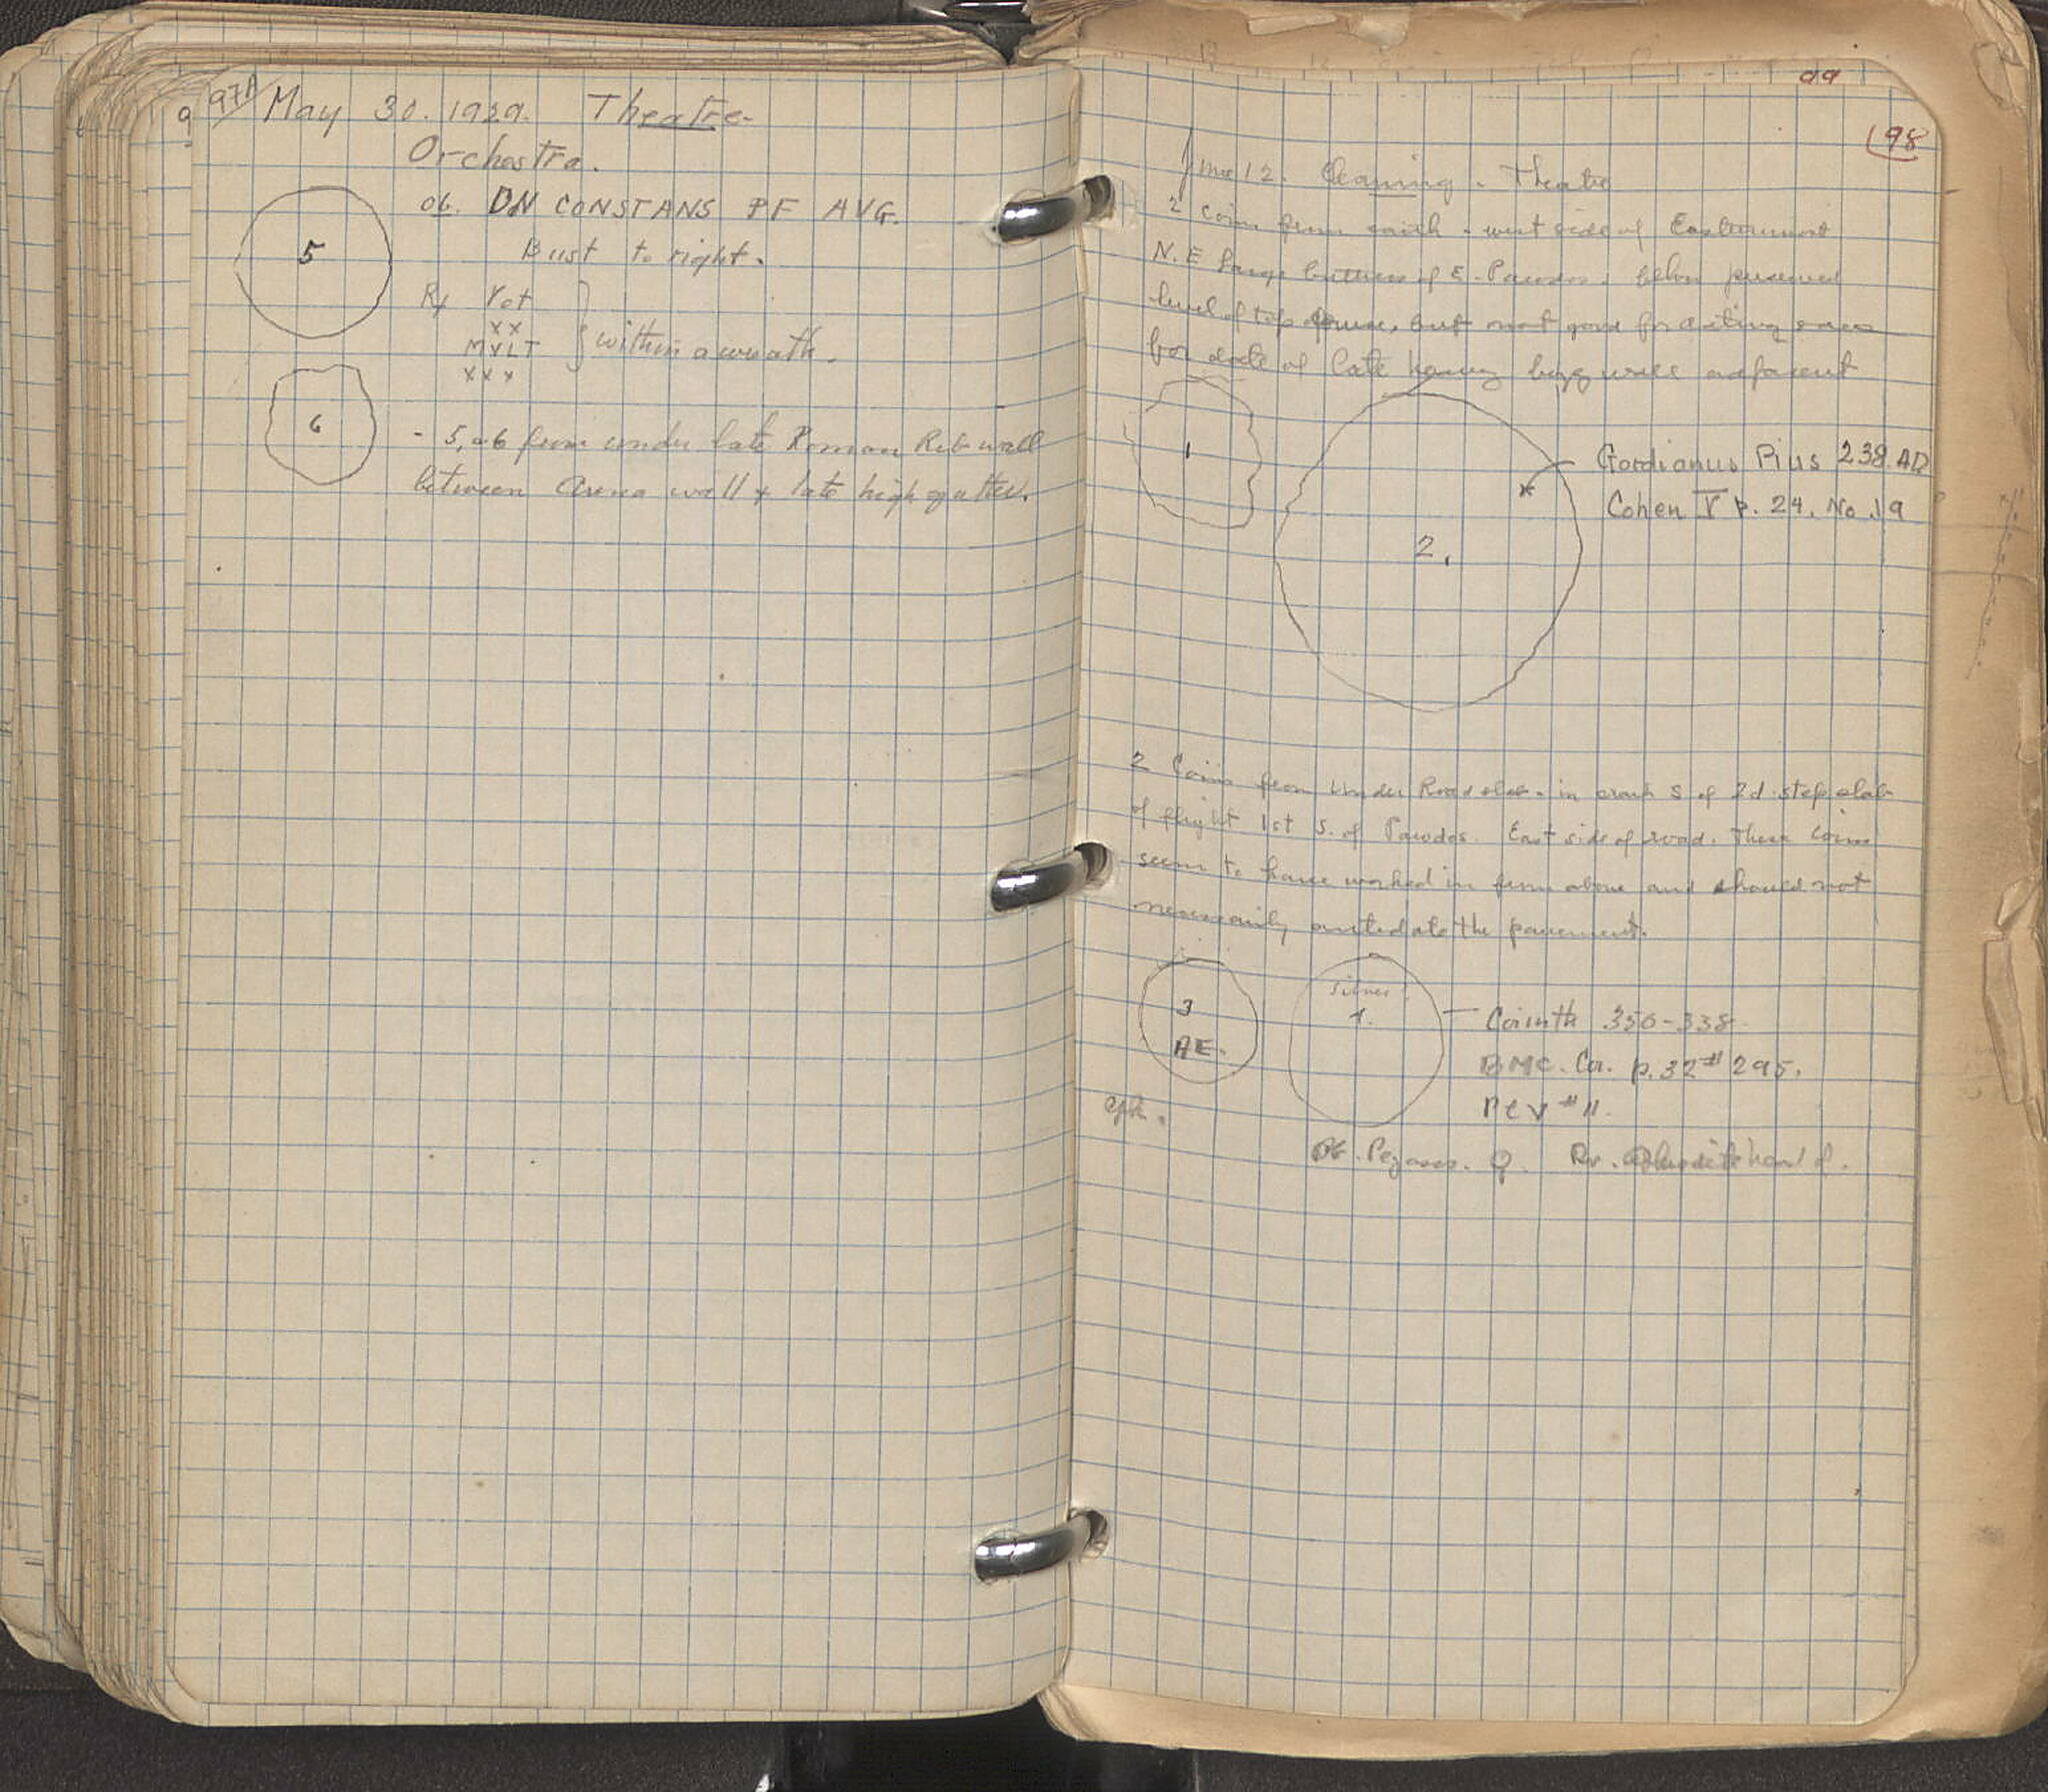 97A May 30. 1929. Theatre.
Orchestra.
5
ob. DN CONSTANS PF AVG.
Bust to right.
Rx Vot
XX
MVLT
XXX
within a wreath.
6
- 5, & 6 from under late Roman Rub wall
between Arena wall & late high gutter.
99
98
June 12. Cleaning. Theatre
2 coins from earth - west side of Easternmost
N.E large buttress of E. Parodos. below preserved
level of top course, but not good for dating
for date of late heavy wall adjacent
1
2.
Gordianus Pius 238 AD
Cohen V p. 24. No 19
2 Coins from under Road slab - in crack S of 2d step slab
of flight 1st S. of Parodos. East side of road. These coins
seem to have worked in from above and should not
necessarily antedate the pavement.
3
AE.
Silver
Corinth 350-338
BMC. Cor. p. 32 # 295.
# 11.
Ob. Pegasos. Ϙ. Rv. Aphrodite head l.